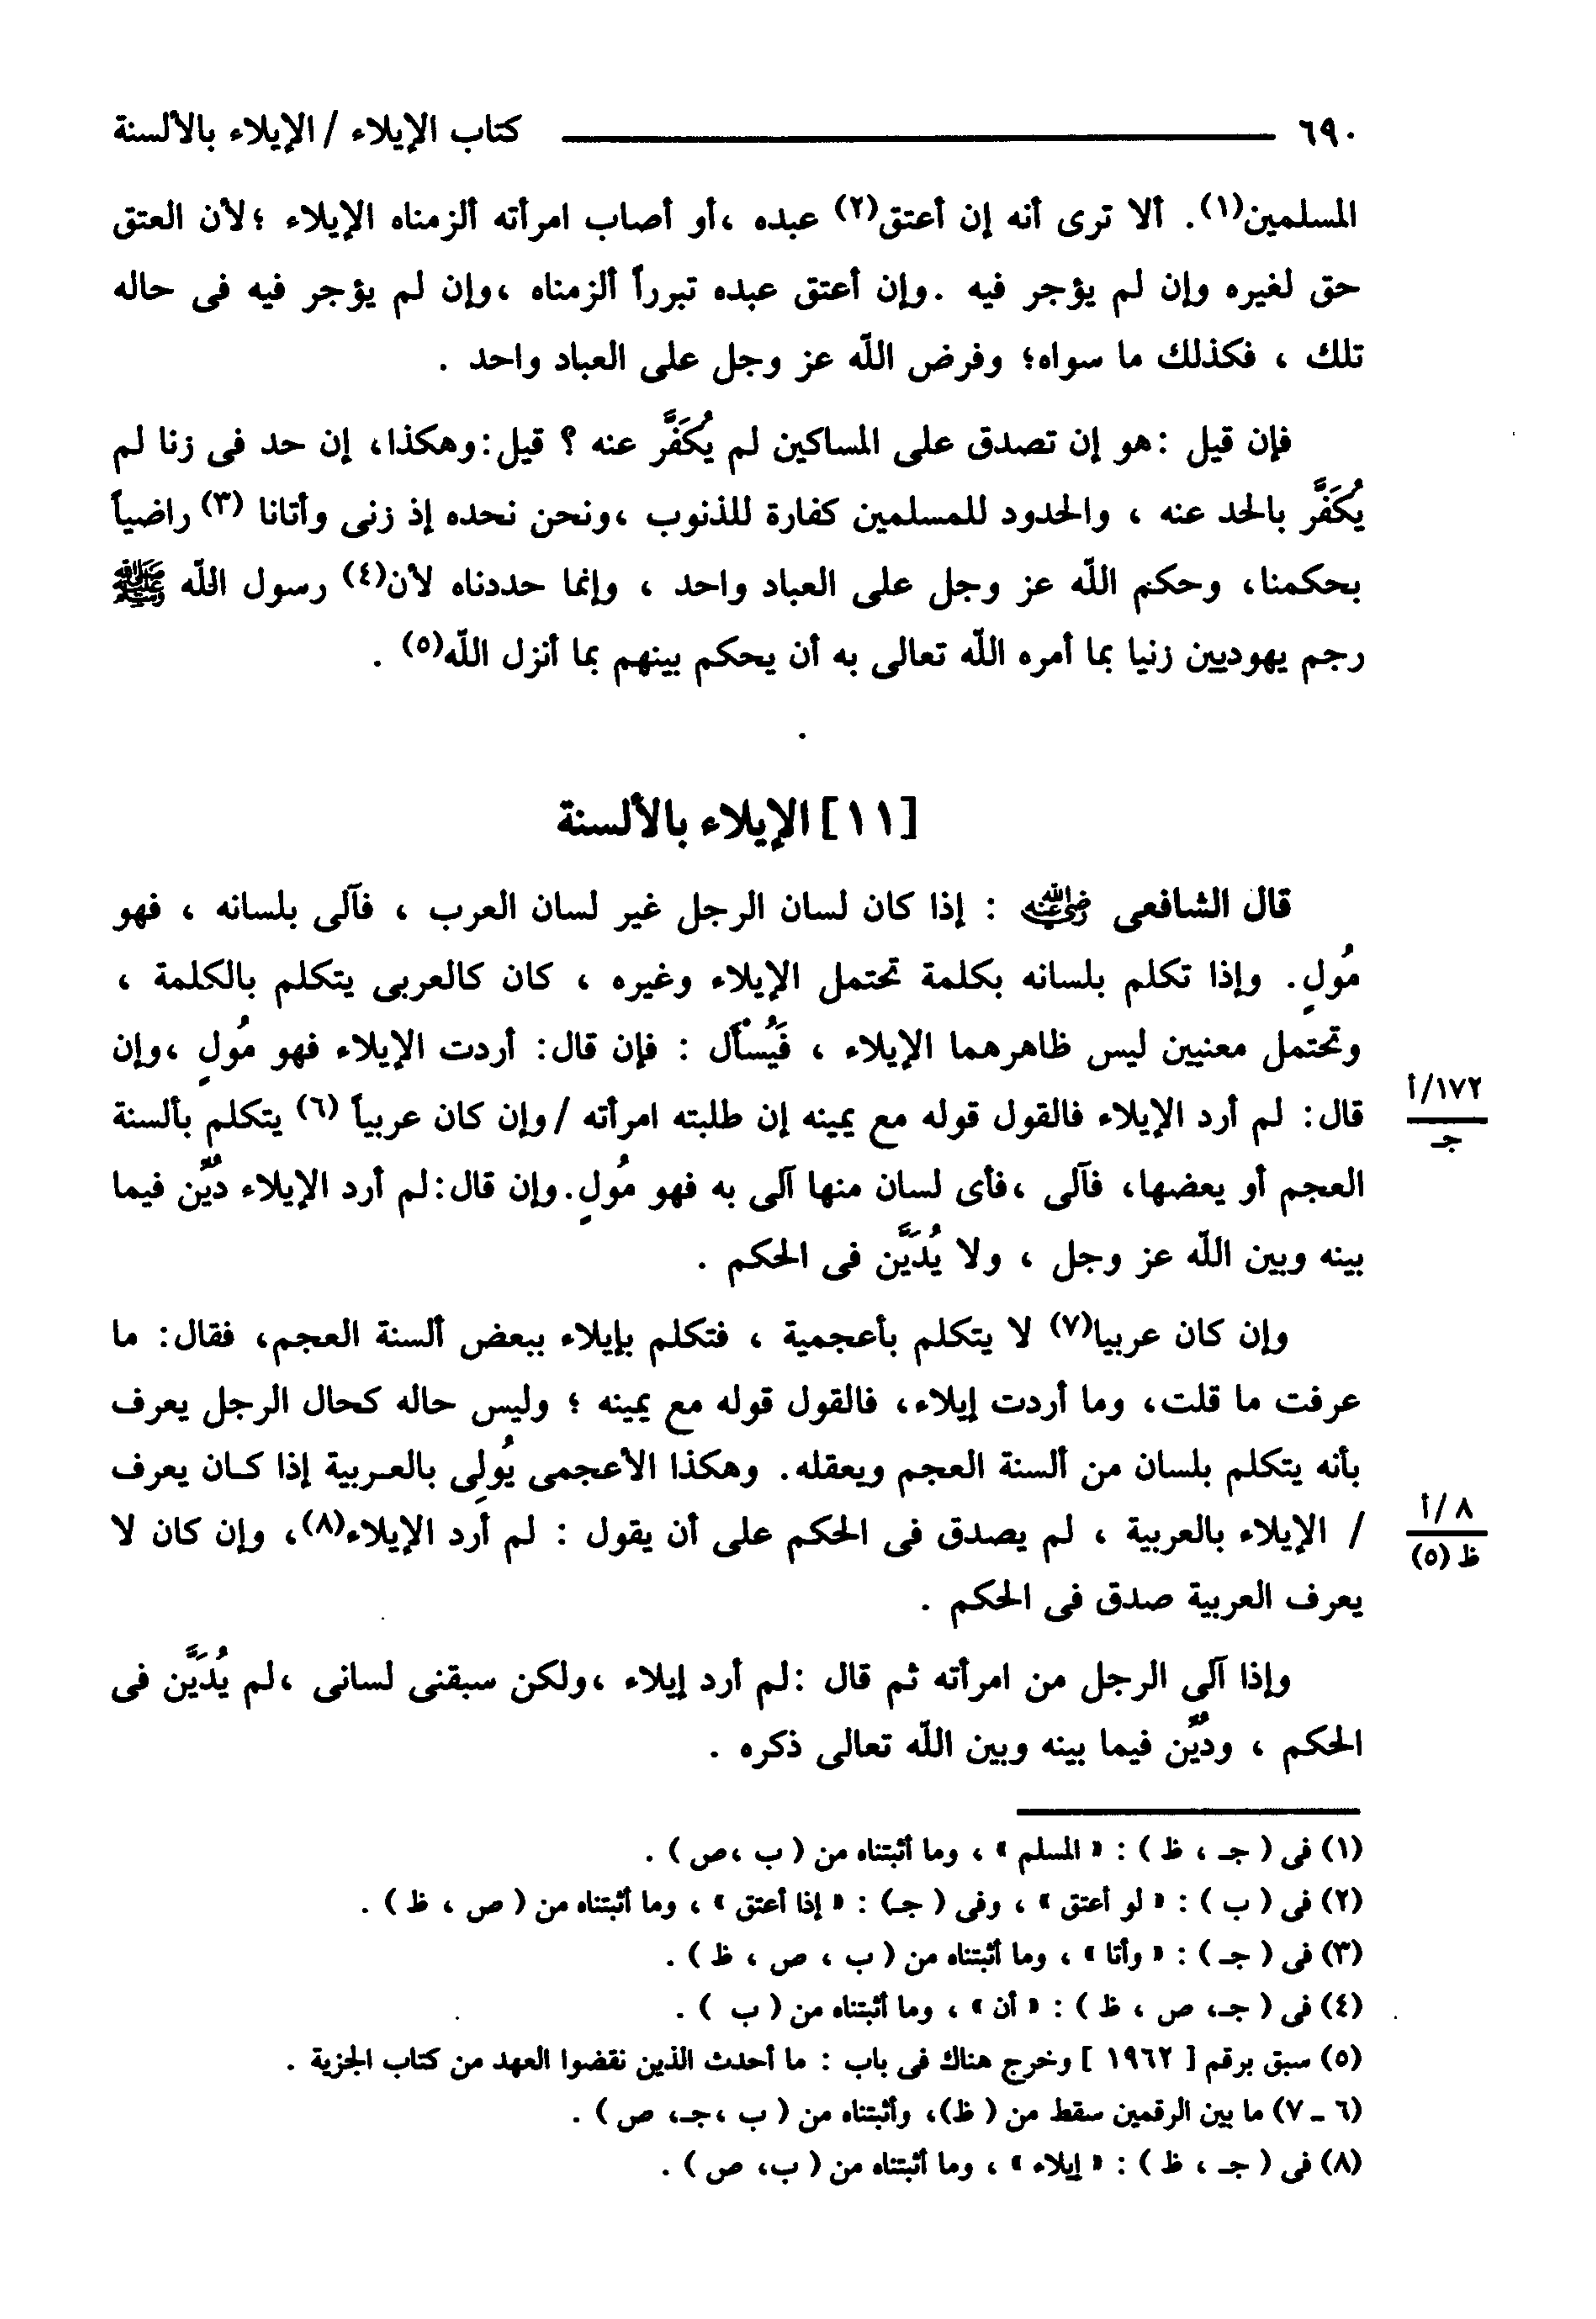 ٦٩٠ كتاب الإيلاء / الإيلاء بالألسنة
المسلمين(١). ألا ترى أنه إن أعتق(٢) عبده ،أو أصاب امرأته ألزمناه الإيلاء ؛لأن العتق
حق لغيره وإن لم يؤجر فيه .وإن أعتق عبده تبرراً ألزمناه ،وإن لم يؤجر فيه فى حاله
تلك ، فكذلك ما سواه؛ وفرض اللّه عز وجل على العباد واحد .
فإن قيل :هو إن تصدق على المساكين لم يُكَفَّر عنه ؟ قيل:وهكذا، إن حد فى زنا لم
يُكَفَّر بالحد عنه ، والحدود للمسلمين كفارة للذنوب ،ونحن نحده إذ زنى وأتانا (٣) راضياً
بحكمنا، وحكم اللّه عز وجل على العباد واحد ، وإنما حددناه لأن(٤) رسول اللّه ﷺ
رجم يهوديين زنيا بما أمره اللّه تعالى به أن يحكم بينهم بما أنزل اللّه(٥) .
[١١] الإيلاء بالألسنة
قال الشافعى رضي الله عنه : إذا كان لسان الرجل غير لسان العرب ، فآلى بلسانه ، فهو
مُولٍ. وإذا تكلم بلسانه بكلمة تحتمل الإيلاء وغيره ، كان كالعربى يتكلم بالكلمة ،
وتحتمل معنيين ليس ظاهرهما الإيلاء ، فَيُسْأَل : فإن قال: أردت الإيلاء فهو مُولٍ ،وإن
قال: لم أرد الإيلاء فالقول قوله مع يمينه إن طلبته امرأته /وإن كان عربياً (٦) يتكلم بألسنة
١٧٢/أ
جـ
العجم أو بعضها، فآلى ،فأى لسان منها آلى به فهو مُولٍ.وإن قال:لم أرد الإيلاء دُيِّن فيما
بينه وبين اللّه عز وجل ، ولا يُدَيَّن فى الحكم .
وإن كان عربيا(٧) لا يتكلم بأعجمية ، فتكلم بإيلاء ببعض ألسنة العجم، فقال: ما
عرفت ما قلت، وما أردت إيلاء، فالقول قوله مع يمينه ؛ وليس حاله كحال الرجل يعرف
بأنه يتكلم بلسان من ألسنة العجم ويعقله. وهكذا الأعجمى يُولِى بالعـربية إذا كـان يعرف
/ الإيلاء بالعربية ، لم يصدق فى الحكم على أن يقول : لم أرد الإيلاء(٨)، وإن كان لا
٨ /أ
ظ (٥)
يعرف العربية صدق فى الحكم .
وإذا آلى الرجل من امرأته ثم قال :لم أرد إيلاء ،ولكن سبقنى لسانى ،لم يُدَيَّن فى
الحكم ، ودُيِّن فيما بينه وبين اللّه تعالى ذكره .
(١) فى ( جـ ، ظ ) : « المسلم » ، وما أثبتناه من ( ب ،ص ) .
(٢) فى ( ب ) : « لو أعتق » ، وفى ( جـ) : « إذا أعتق » ، وما أثبتناه من ( ص ، ظ ) .
(٣) فى ( جـ ) : « وأتا » ، وما أثبتناه من ( ب ، ص ، ظ ) .
(٤) فى ( جـ، ص ، ظ ) : « أن » ، وما أثبتناه من ( ب ) .
(٥) سبق برقم [ ١٩٦٢ ] وخرج هناك فى باب : ما أحدث الذين نقضوا العهد من كتاب الجزية .
(٦ - ٧) ما بين الرقمين سقط من ( ظ)، وأثبتناه من ( ب ،جـ، ص ) .
(٨) فى ( جـ ، ظ ) : « إيلاء » ، وما أثبتناه من ( ب، ص ) .